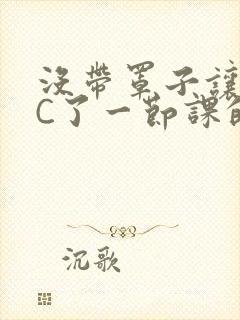 沒帶罩子讓
C了一節課
沉歌